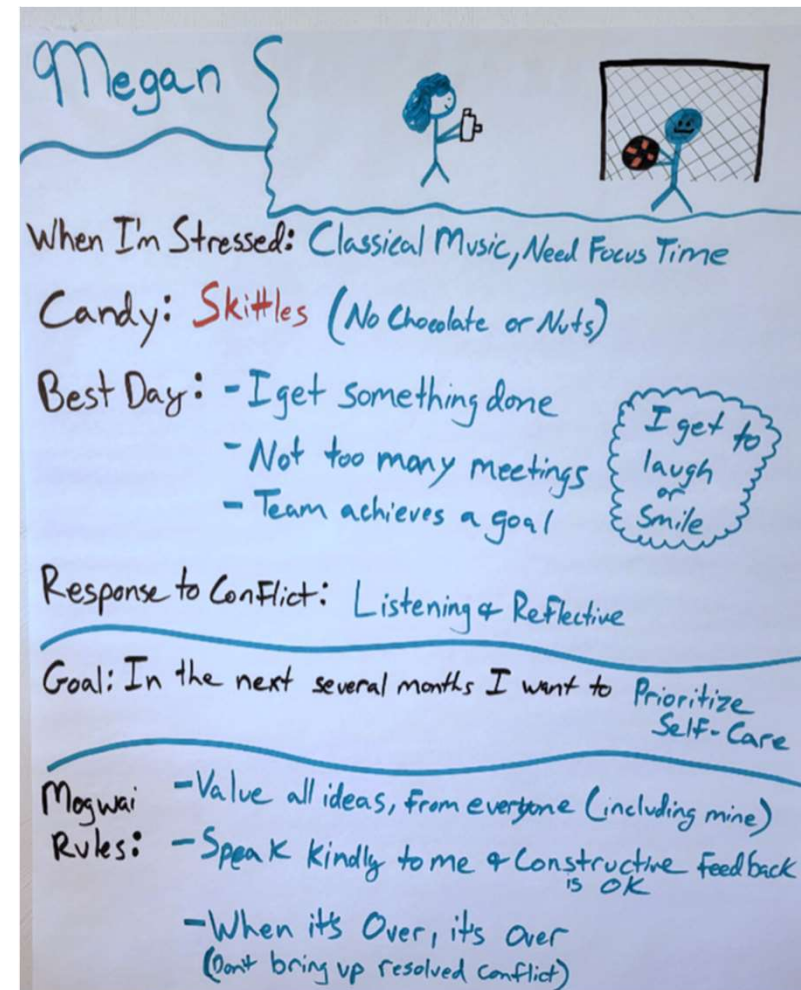 Megan
When I'm Stressed: Classical Music, Need Focus Time
Candy: Skittles (No Chocolate or Nuts)
Best Day: - I get something done
- Not too many meetings
- Team achieves a goal
I get to
laugh
or
Smile
Response to Conflict: Listening & Reflective
Goal: In the next several months I want to Prioritize
Self-Care
Mogwai
Rules:
- Value all ideas, from everyone (including mine)
- Speak Kindly to me & Constructive feedback
is OK
- When it's Over, it's over
(Don't bring up resolved conflict)